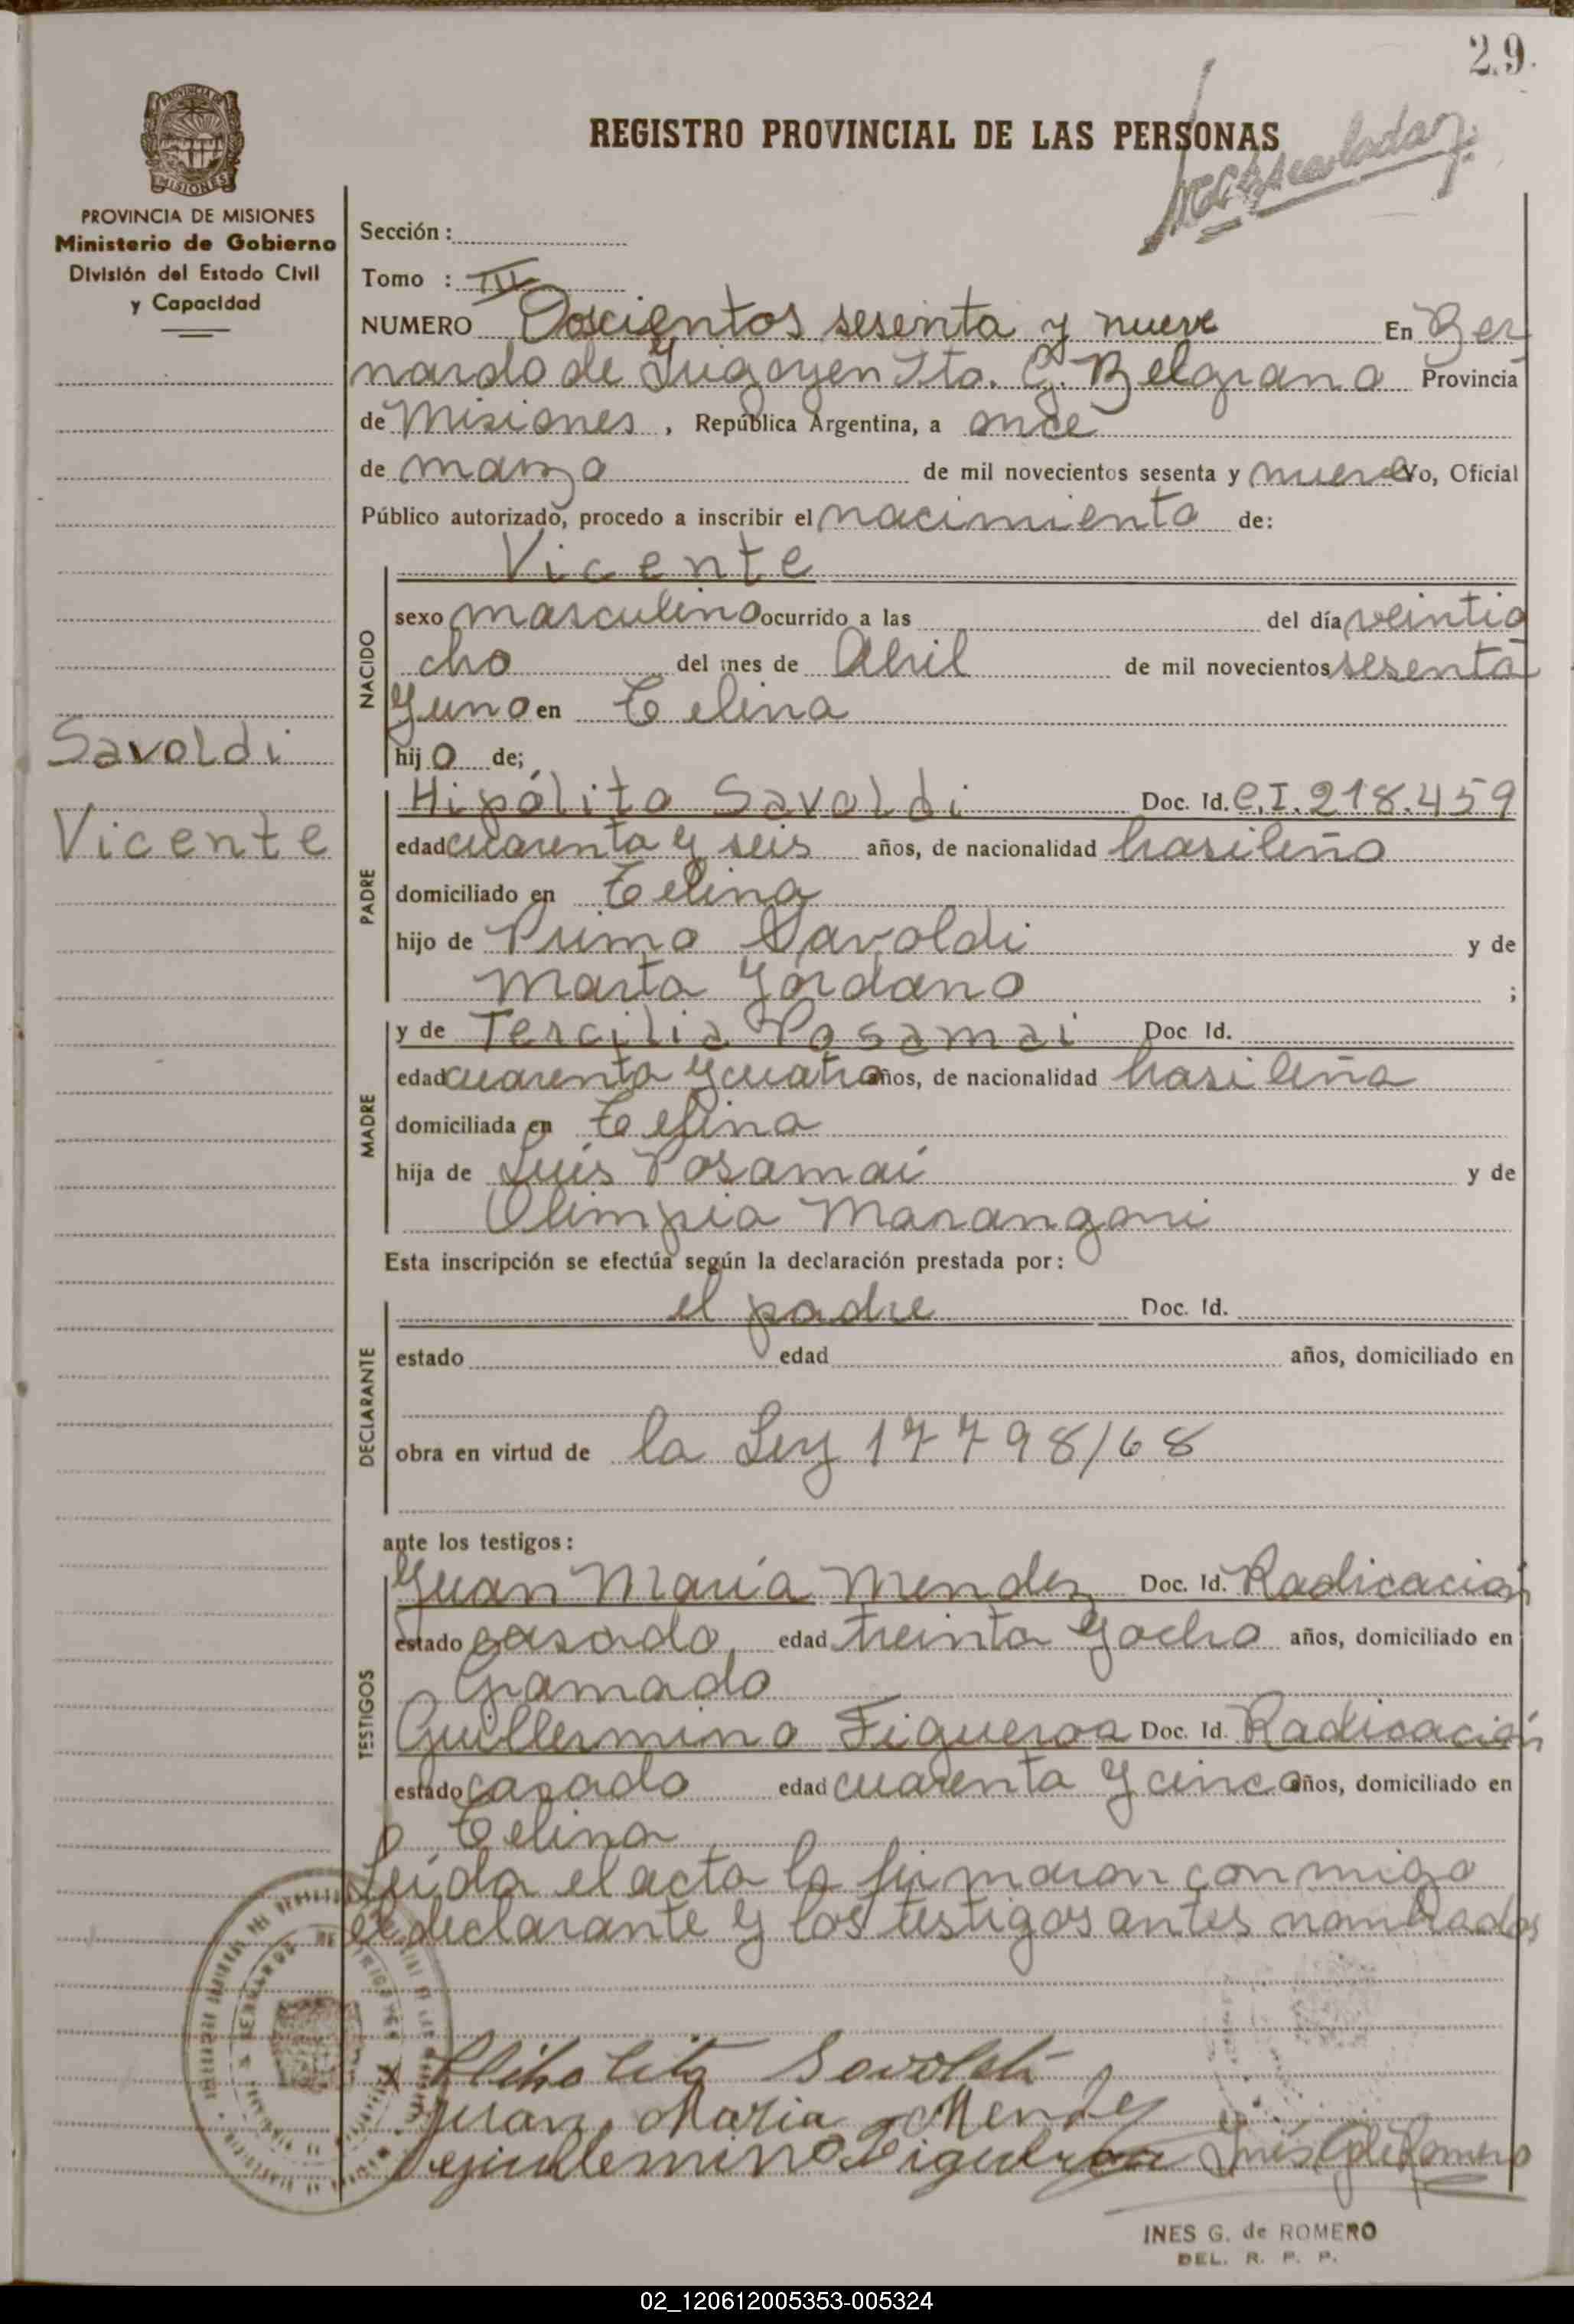 29.
REGISTRO PROVINCIAL DE LAS PERSONAS
PROVINCIA DE MISIONES
Ministerio de Gobierno
División del Estado Civil
y Capacidad
Savoldi
Vicente
Sección :
Tomo : III
NUMERO Doscientos sesenta y nueve En Ber
nardo de Yrigoyen Dto. G. Belgrano Provincia
de Misiones , República Argentina, a once
de marzo de mil novecientos sesenta y nueve Yo, Oficial
Público autorizado, procedo a inscribir el nacimiento de:
Vicente
NACIDO
sexo masculino ocurrido a las del día veintio
cho del mes de Abril de mil novecientos sesenta
y uno en Celina
hij o de;
PADRE
Hipólito Savoldi Doc. Id. C.I. 218.459
edad cuarenta y seis años, de nacionalidad brasileño
domiciliado en Celina
hijo de Primo Savoldi y de
Marta Yordano ;
MADRE
y de Tercilia Posamai Doc Id.
edad cuarenta y cuatro años, de nacionalidad brasileña
domiciliada en Celina
hija de Luis Posamai y de
Olimpia Marangoni
Esta inscripción se efectúa según la declaración prestada por:
DECLARANTE
el padre Doc. Id.
estado edad años, domiciliado en
obra en virtud de la Ley 17798/68
ante los testigos:
TESTIGOS
Juan María Mendez Doc. Id. Radicación
estado casado edad treinta y ocho años, domiciliado en
Gramado
Guillermino Figueroa Doc. Id. Radicación
estado casado edad cuarenta y cinco años, domiciliado en
Celina
Leída el acta la firmaron conmigo
el declarante y los testigos antes nombrados
x Hipolito Savoldi
Juan Maria Mendez
Guillermino Figueroa Inés G de Romero
INES G. de ROMERO
DEL. R. P. P.
02_120612005353-005324